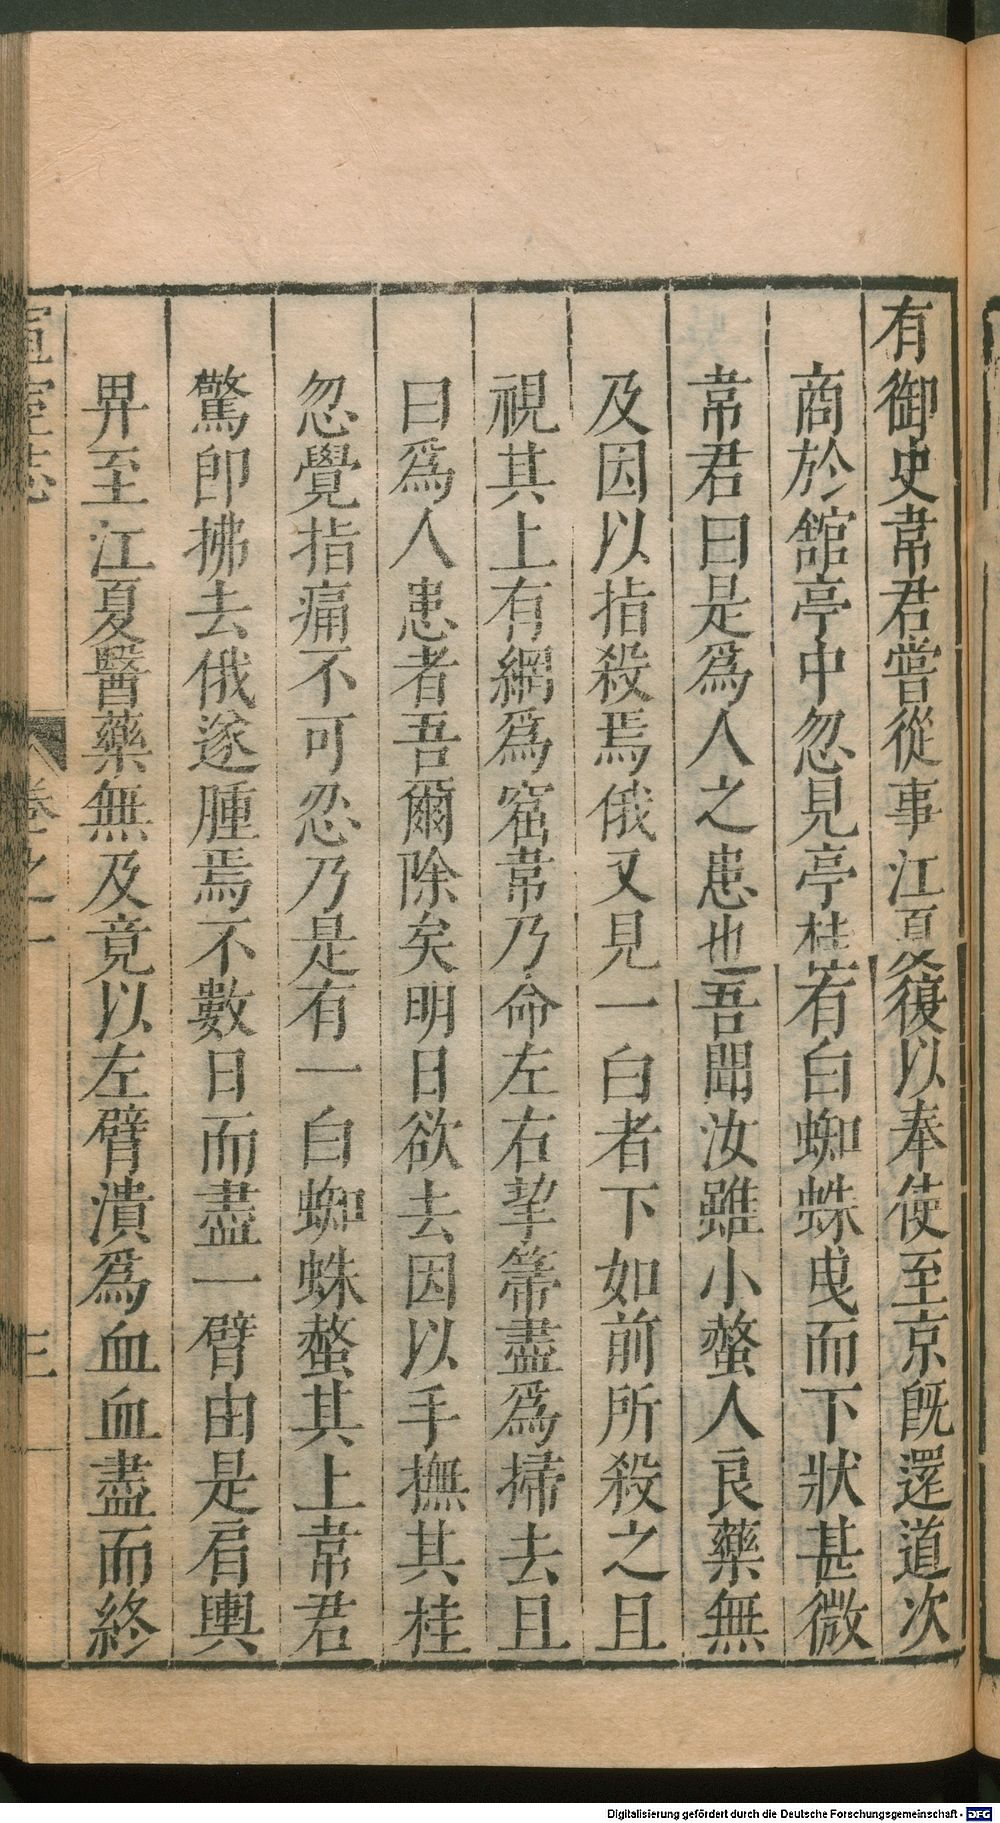 有御史韋君嘗從事江夏復以奉使至京旣還道次
商於舘亭中忽見亭桂有白蜘蛛曵而下狀甚微
韋君曰是爲人之患也吾聞汝雖小螫人良藥無
及因以指殺焉俄又見一白者下如前所殺之且
視其上有網爲窟韋乃命左右挈箒盡爲掃去且
曰爲人患者吾爾除矣明日欲去因以手撫其桂
忽覺指痛不可忍乃是有一白蜘蛛螫其上韋君
驚即拂去俄遂腫焉不數日而盡一臂由是肩輿
舁至江夏醫藥無及竟以左臂潰爲血血盡而終
宣室志 卷之一 三
Digitalisierung gefördert durch die Deutsche Forschungsgemeinschaft - DFG